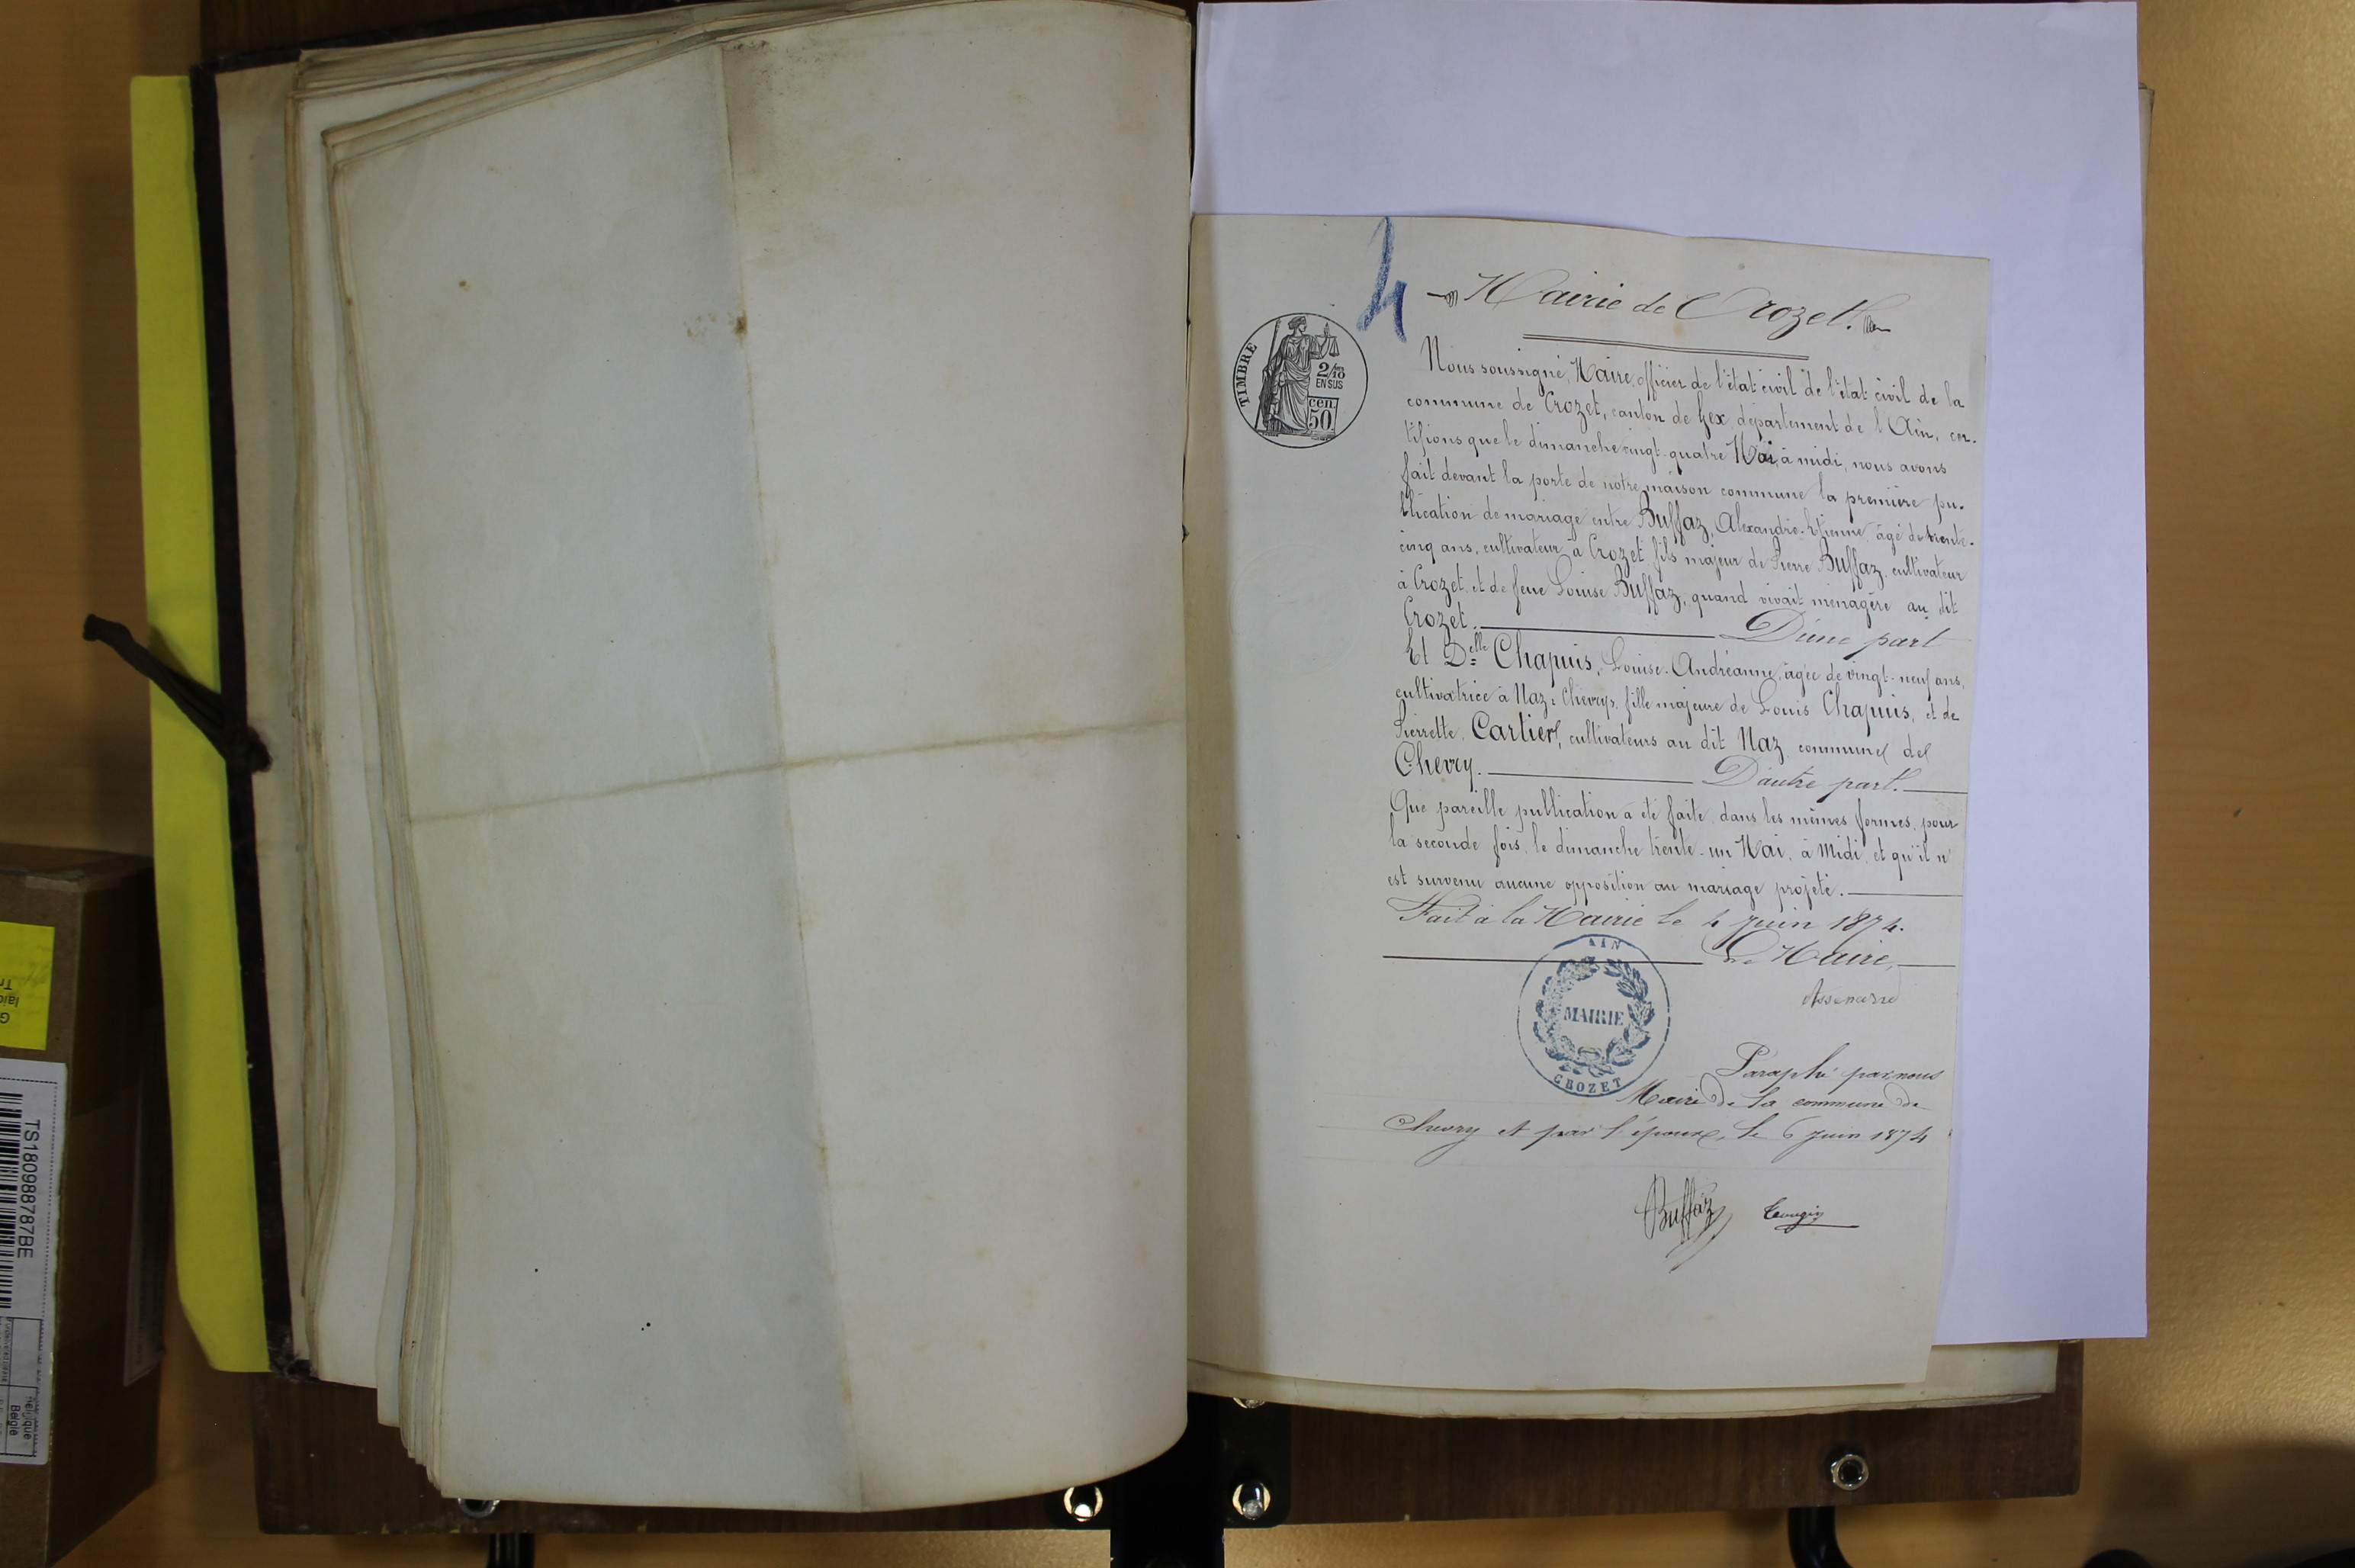 4
Mairie de Crozet.
TIMBRE
2/10
EN SUS
cen.
50
Nous soussigné, Maire, officier de l'état civil de l'état civil de la
commune de Crozet, canton de Gex, département de l'Ain, cer-
tifions que le dimanche vingt-quatre Mai, à midi, nous avons
fait devant la porte de notre maison commune la première pu-
blication de mariage entre Buffaz, Alexandre-Etienne, âgé de trente-
cinq ans, cultivateur à Crozet, fils majeur de Pierre Buffaz, cultivateur
à Crozet, et de feue Louise Buffaz, quand vivait ménagère au dit
Crozet. D'une part
Et Delle Chapuis, Louise-Andréanne, âgée de vingt-neuf ans,
cultivatrice à Naz-Chevry, fille majeure de Louis Chapuis, et de
Pierrette Cartier, cultivateurs au dit Naz, commune de
Chevry. D'autre part.
Que pareille publication a été faite, dans les mêmes formes, pour
la seconde fois, le dimanche trente-un Mai, à Midi, et qu'il n'
est survenu aucune opposition au mariage projeté.
Fait à la Mairie le 4 Juin 1874.
Le Maire,
AIN
MAIRIE
CROZET
Paraphé par nous
Maire de la commune de
Chevry et par l'époux, le 6 Juin 1874
Buffaz
TS180988787BE
Belgique
België